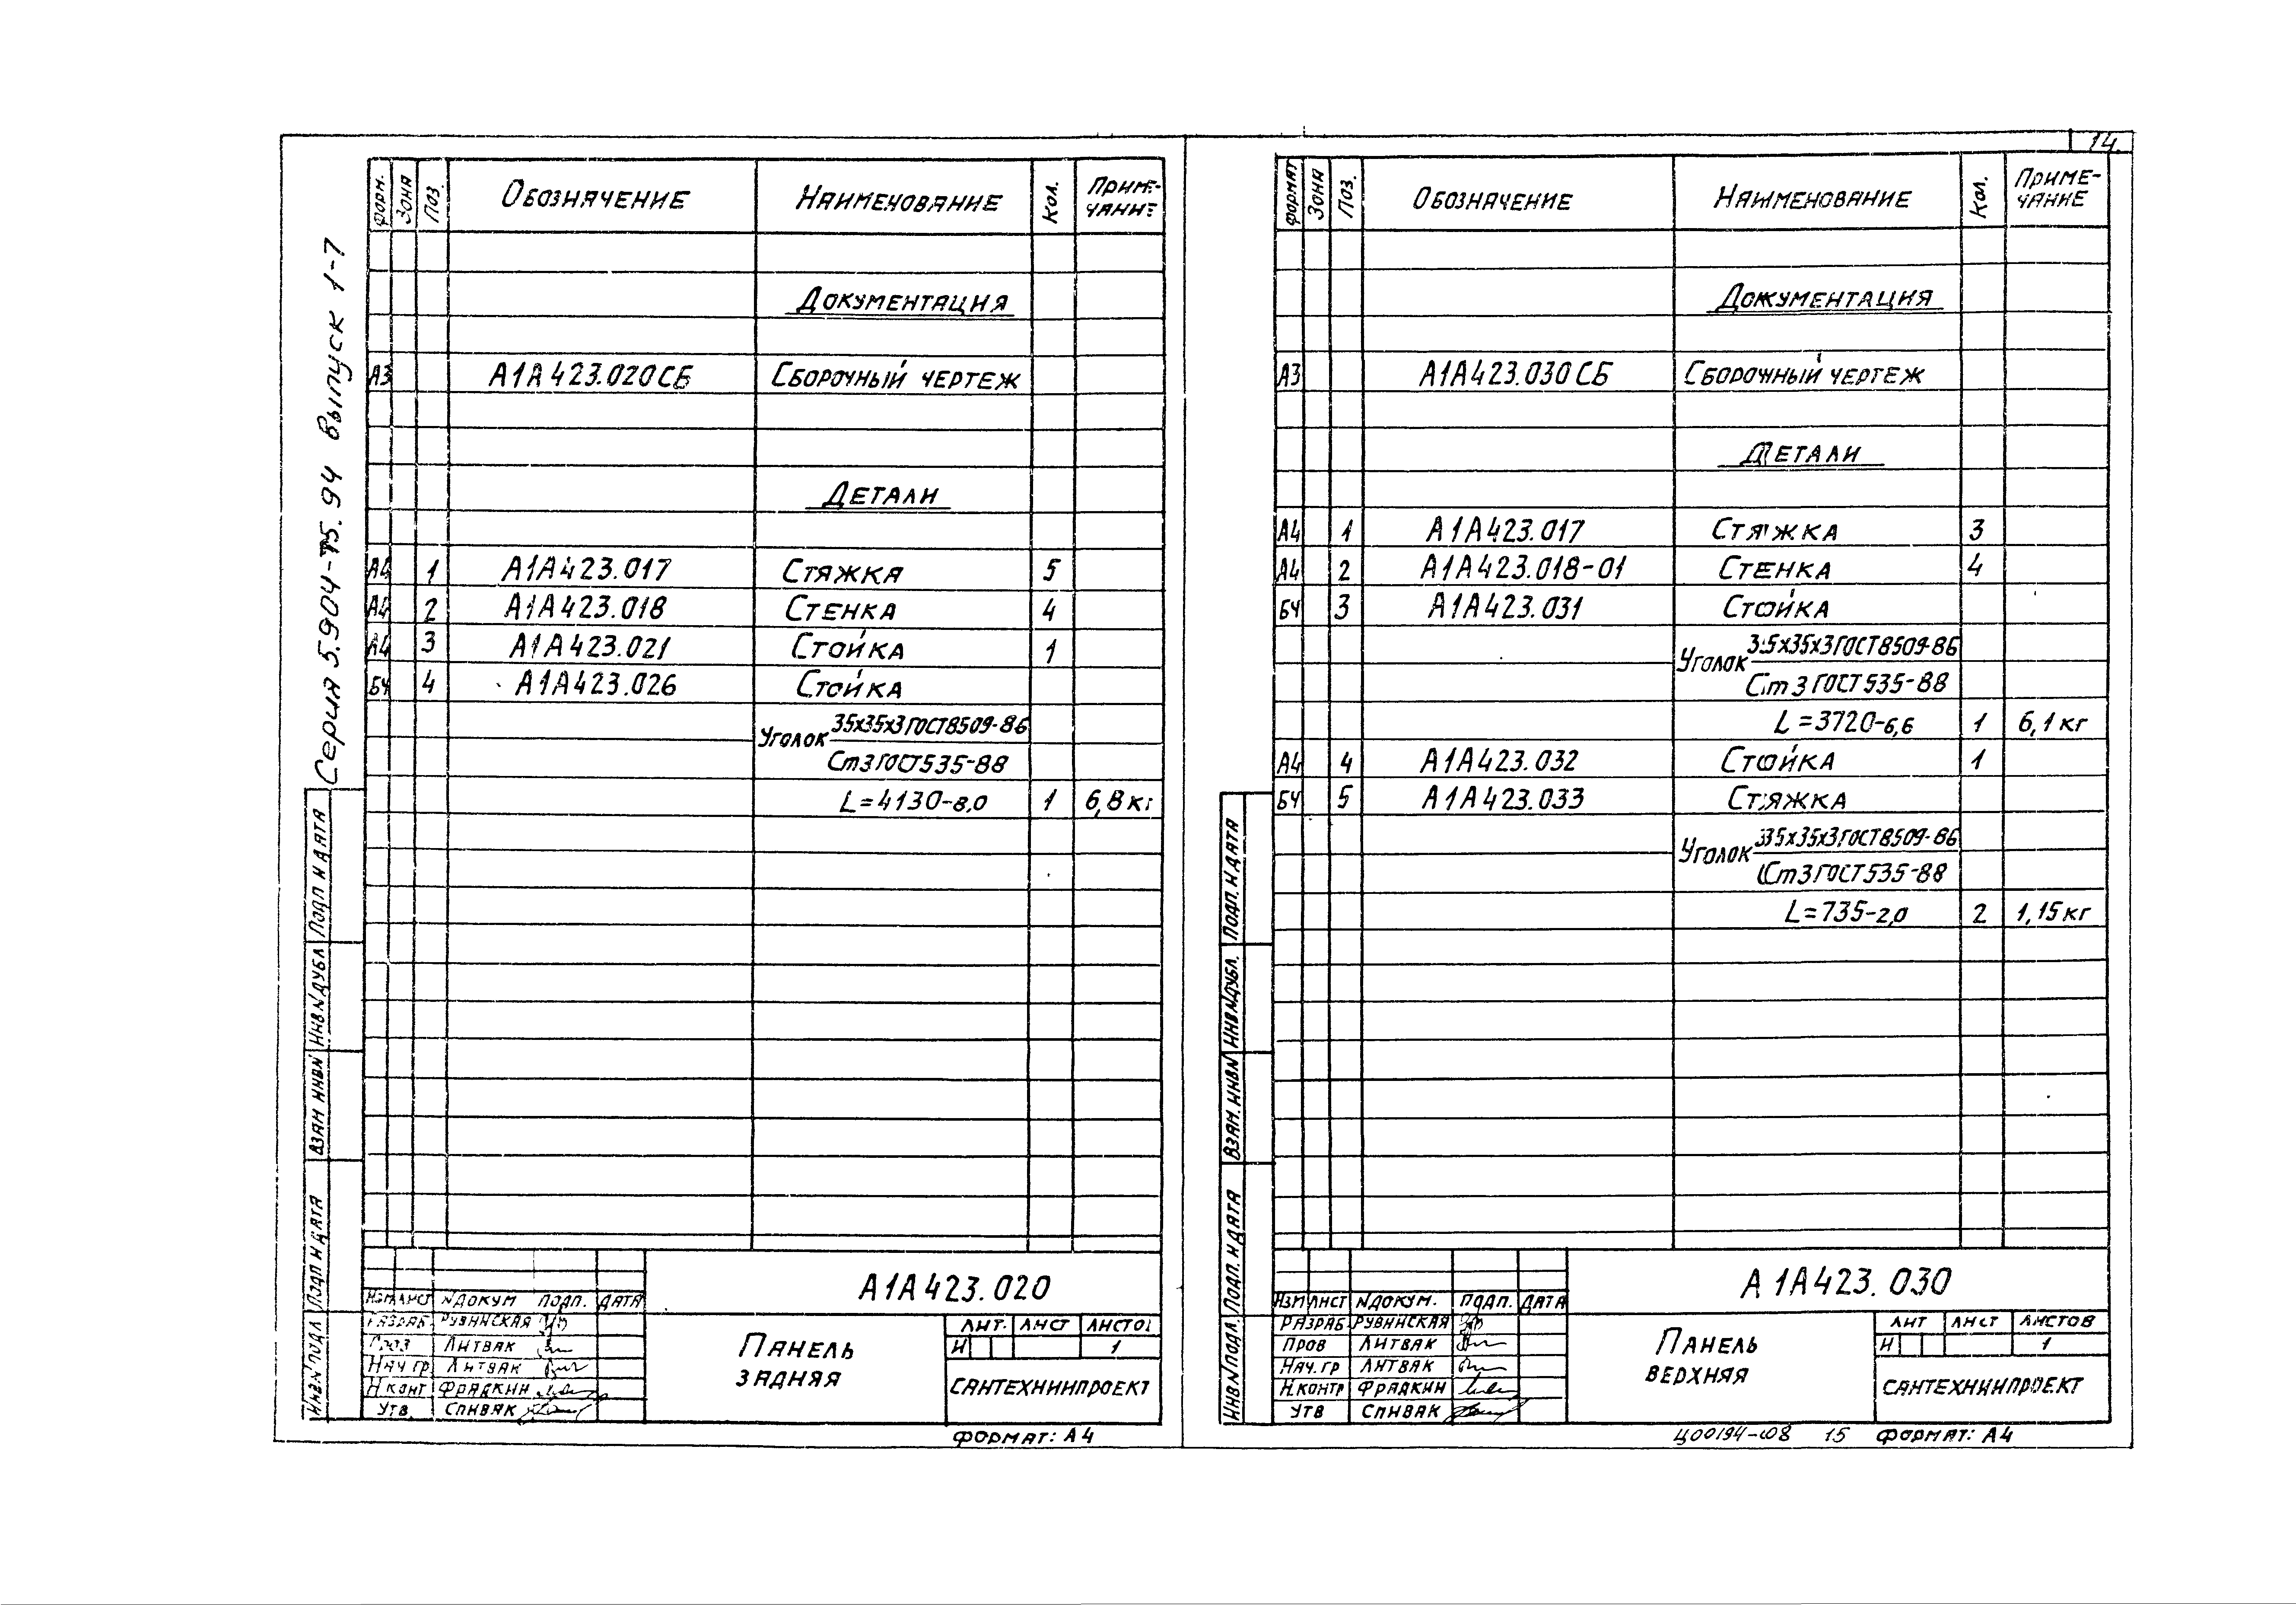 14.
Серия 5.904-75.94 выпуск 1-7
Форм. Зона Поз. Обозначение Наименование Кол. Примечание
Документация
А3 А1А423.020СБ Сборочный чертеж
Детали
А4 1 А1А423.017 Стяжка 5
А4 2 А1А423.018 Стенка 4
А4 3 А1А423.021 Стойка 1
БЧ 4 А1А423.026 Стойка
Уголок 35х35х3 ГОСТ 8509-86
Ст3 ГОСТ 535-88
L=4130-8,0 1 6,8 кг
Инв№подл Подп и дата Взам инв№ Инв№дубл Подп и дата
А1А423.020
Изм Лист №докум Подп. Дата
Разраб. Рувинская
Пров Литвак
Нач гр Литвак
Н конт Фрадкин
Утв Спивак
Панель
задняя
Лит. Лист Листов
И 1
Сантехниипроект
Формат: А4
Формат Зона Поз. Обозначение Наименование Кол. Примечание
Документация
А3 А1А423.030СБ Сборочный чертеж
Детали
А4 1 А1А423.017 Стяжка 3
А4 2 А1А423.018-01 Стенка 4
БЧ 3 А1А423.031 Стойка
Уголок 35х35х3 ГОСТ 8509-86
Ст3 ГОСТ 535-88
L=3720-6,6 1 6,1 кг
А4 4 А1А423.032 Стойка 1
БЧ 5 А1А423.033 Стяжка
Уголок 35х35х3 ГОСТ 8509-86
Ст3 ГОСТ 535-88
L=735-2,0 2 1,15 кг
Инв№подл. Подп. и дата Взам. инв№ Инв№дубл. Подп. и дата
А1А423.030
Изм Лист №докум. Подп. Дата
Разраб Рувинская
Пров Литвак
Нач. гр Литвак
Н.контр Фрадкин
Утв Спивак
Панель
верхняя
Лит Лист Листов
И 1
Сантехниипроект
Ц00194-08 15 Формат: А4